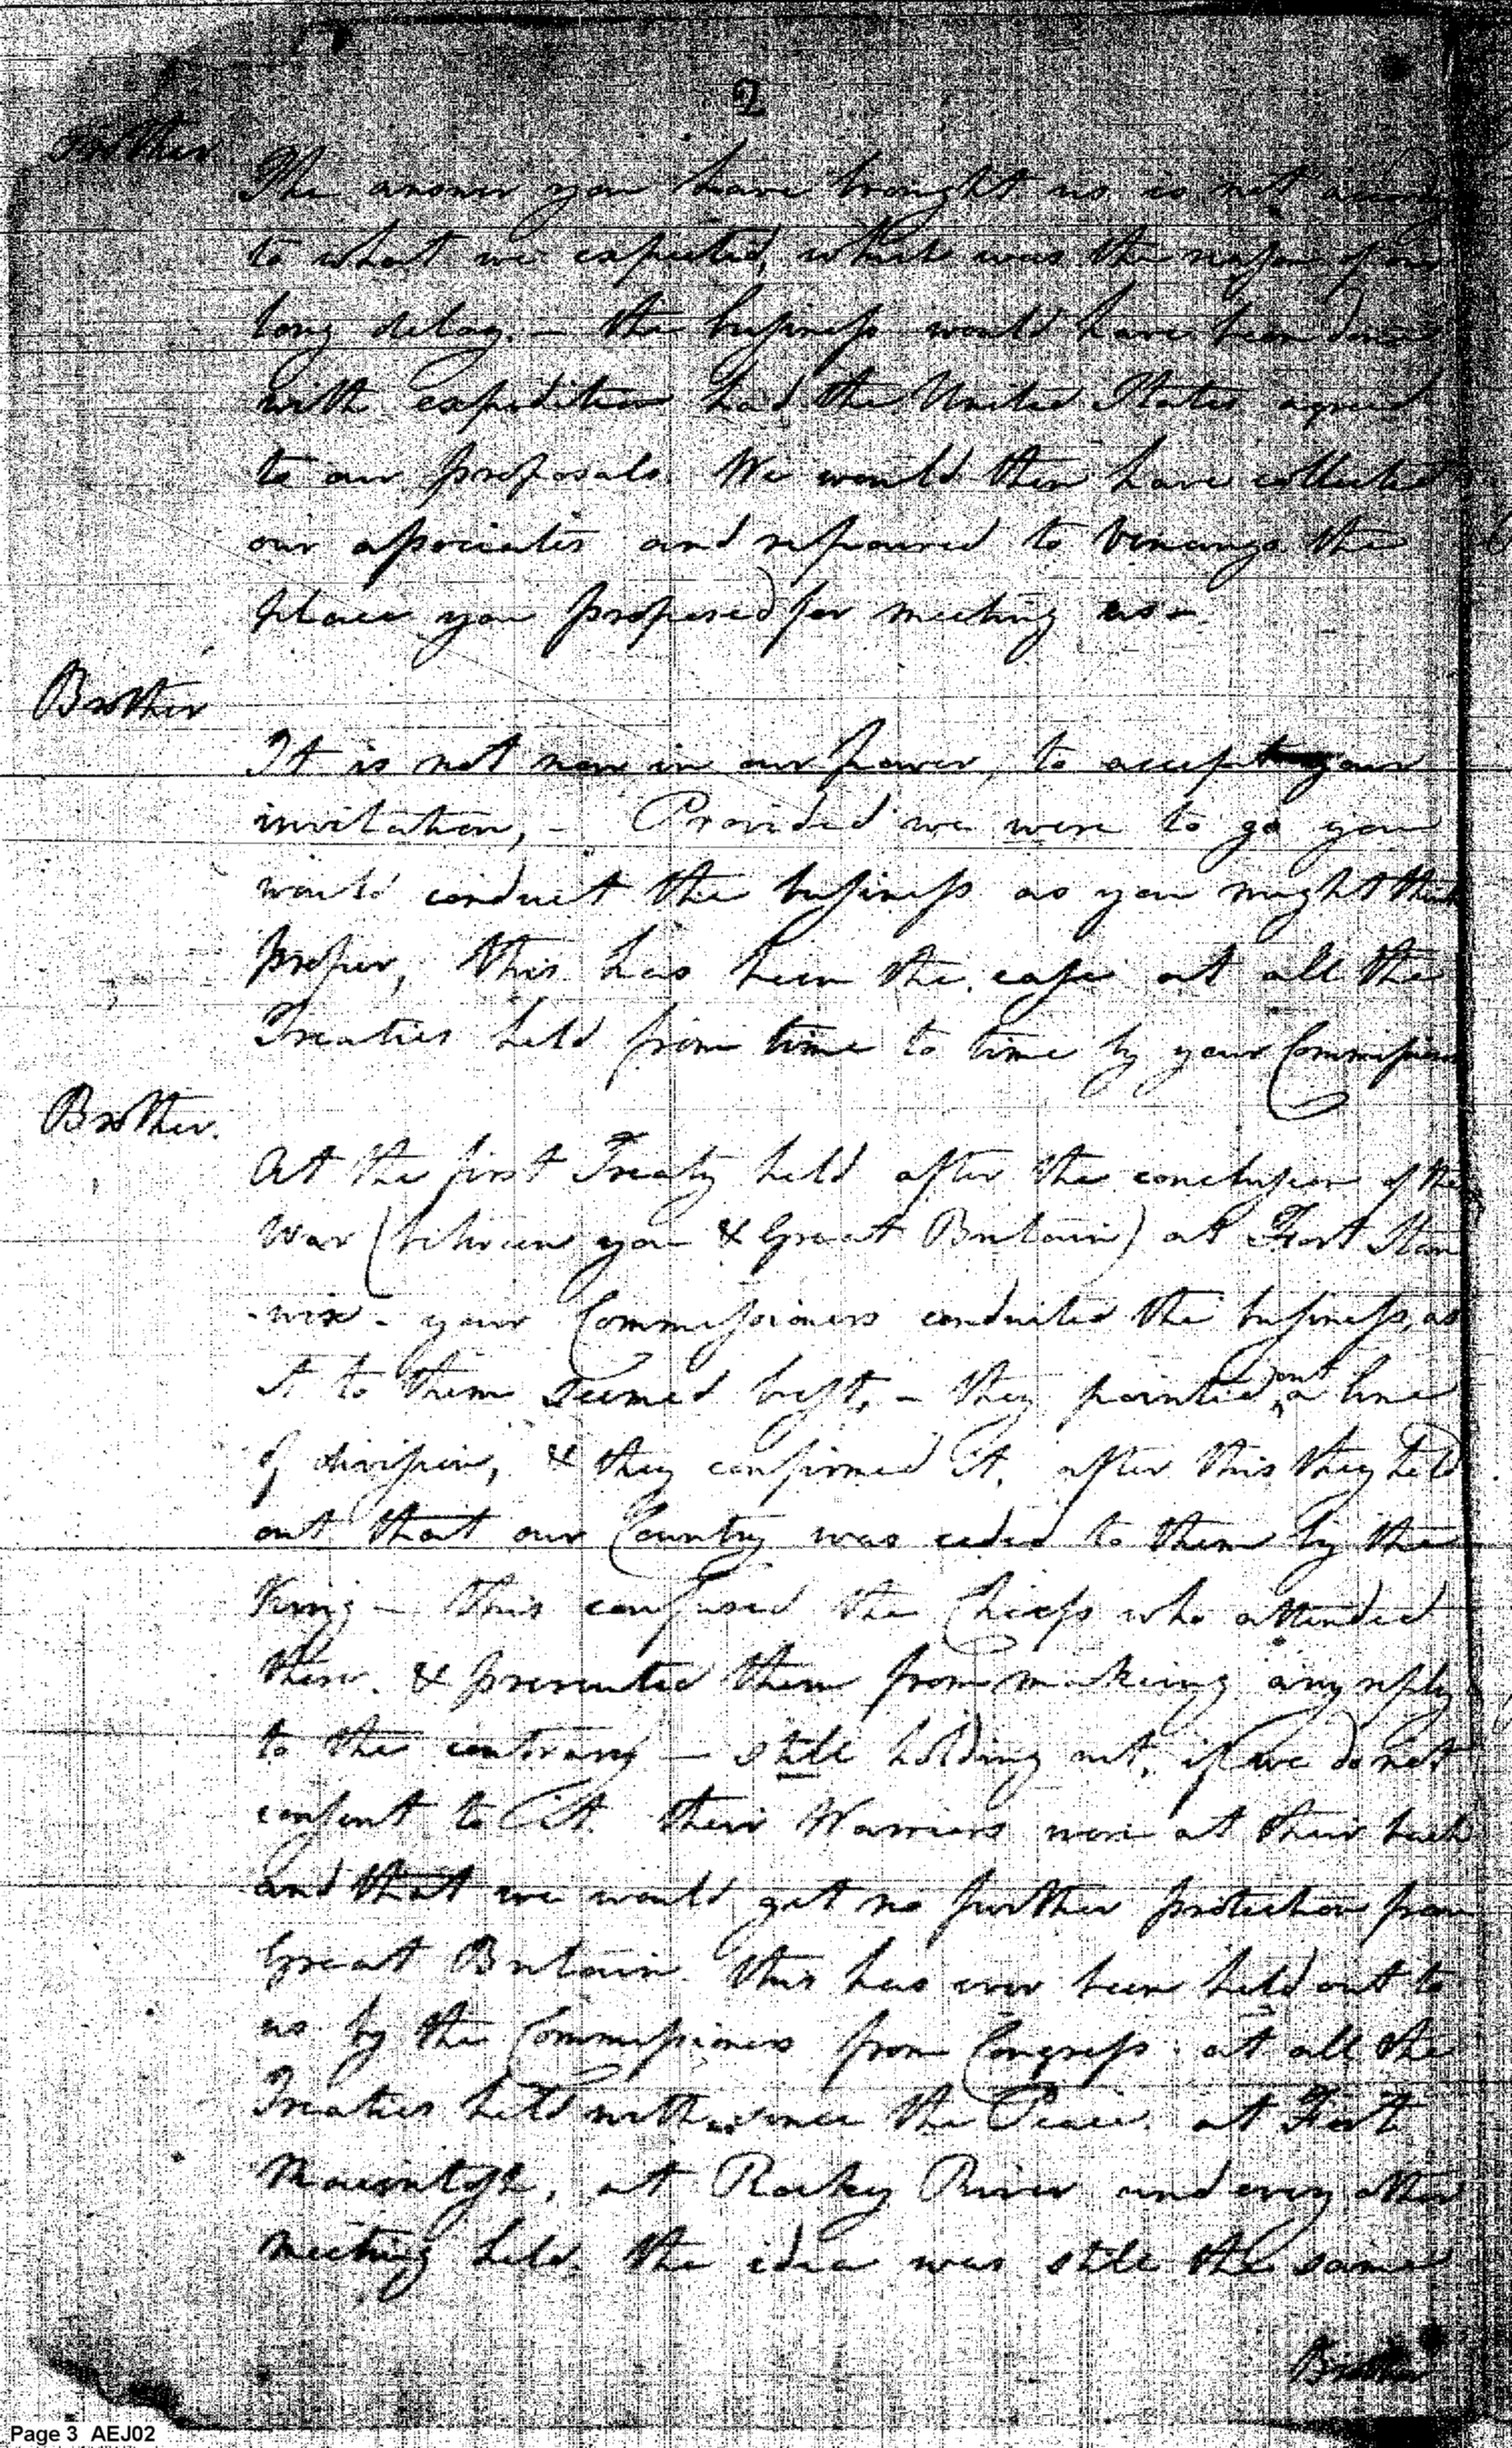 2
Brother
The answer you have brought us is not
to what we expected, which was the reason of our
long delay. – the business would have been done
with expedition had the United States agreed
to our proposals. We would then have collected
our associates and repaired to Venango the
place you proposed for meeting us –
Brother
It is not now in our power, to accept your
invitation, – Provided we were to go you
would conduct the business as you might think
proper, this has been the case at all the
Treaties held from time to time by your Commissioners
Brother.
At the first Treaty held after the conclusion of the
War (between you & Great Britain) at Fort Stan
-wix – your Commissioners conducted the business, as
it to them seemed best, – they pointed out a line
of division, & they confirmed it, after this they held
out that our Country was ceded to them by the
King – this confused the Chiefs who attended
there. & prevented them from making any reply
to the contrary – still holding out, if we do not
consent to it. their Warriors were at their back
and that we would get no further protection from
Great Britain. This has ever been held out to
us by the Commissioners from Congress. at all the
Treaties held with us since the Peace. at Fort
Macintosh, at Rocky River and every other
meeting held. the idea was still the same
Brother
Page 3 AEJ02